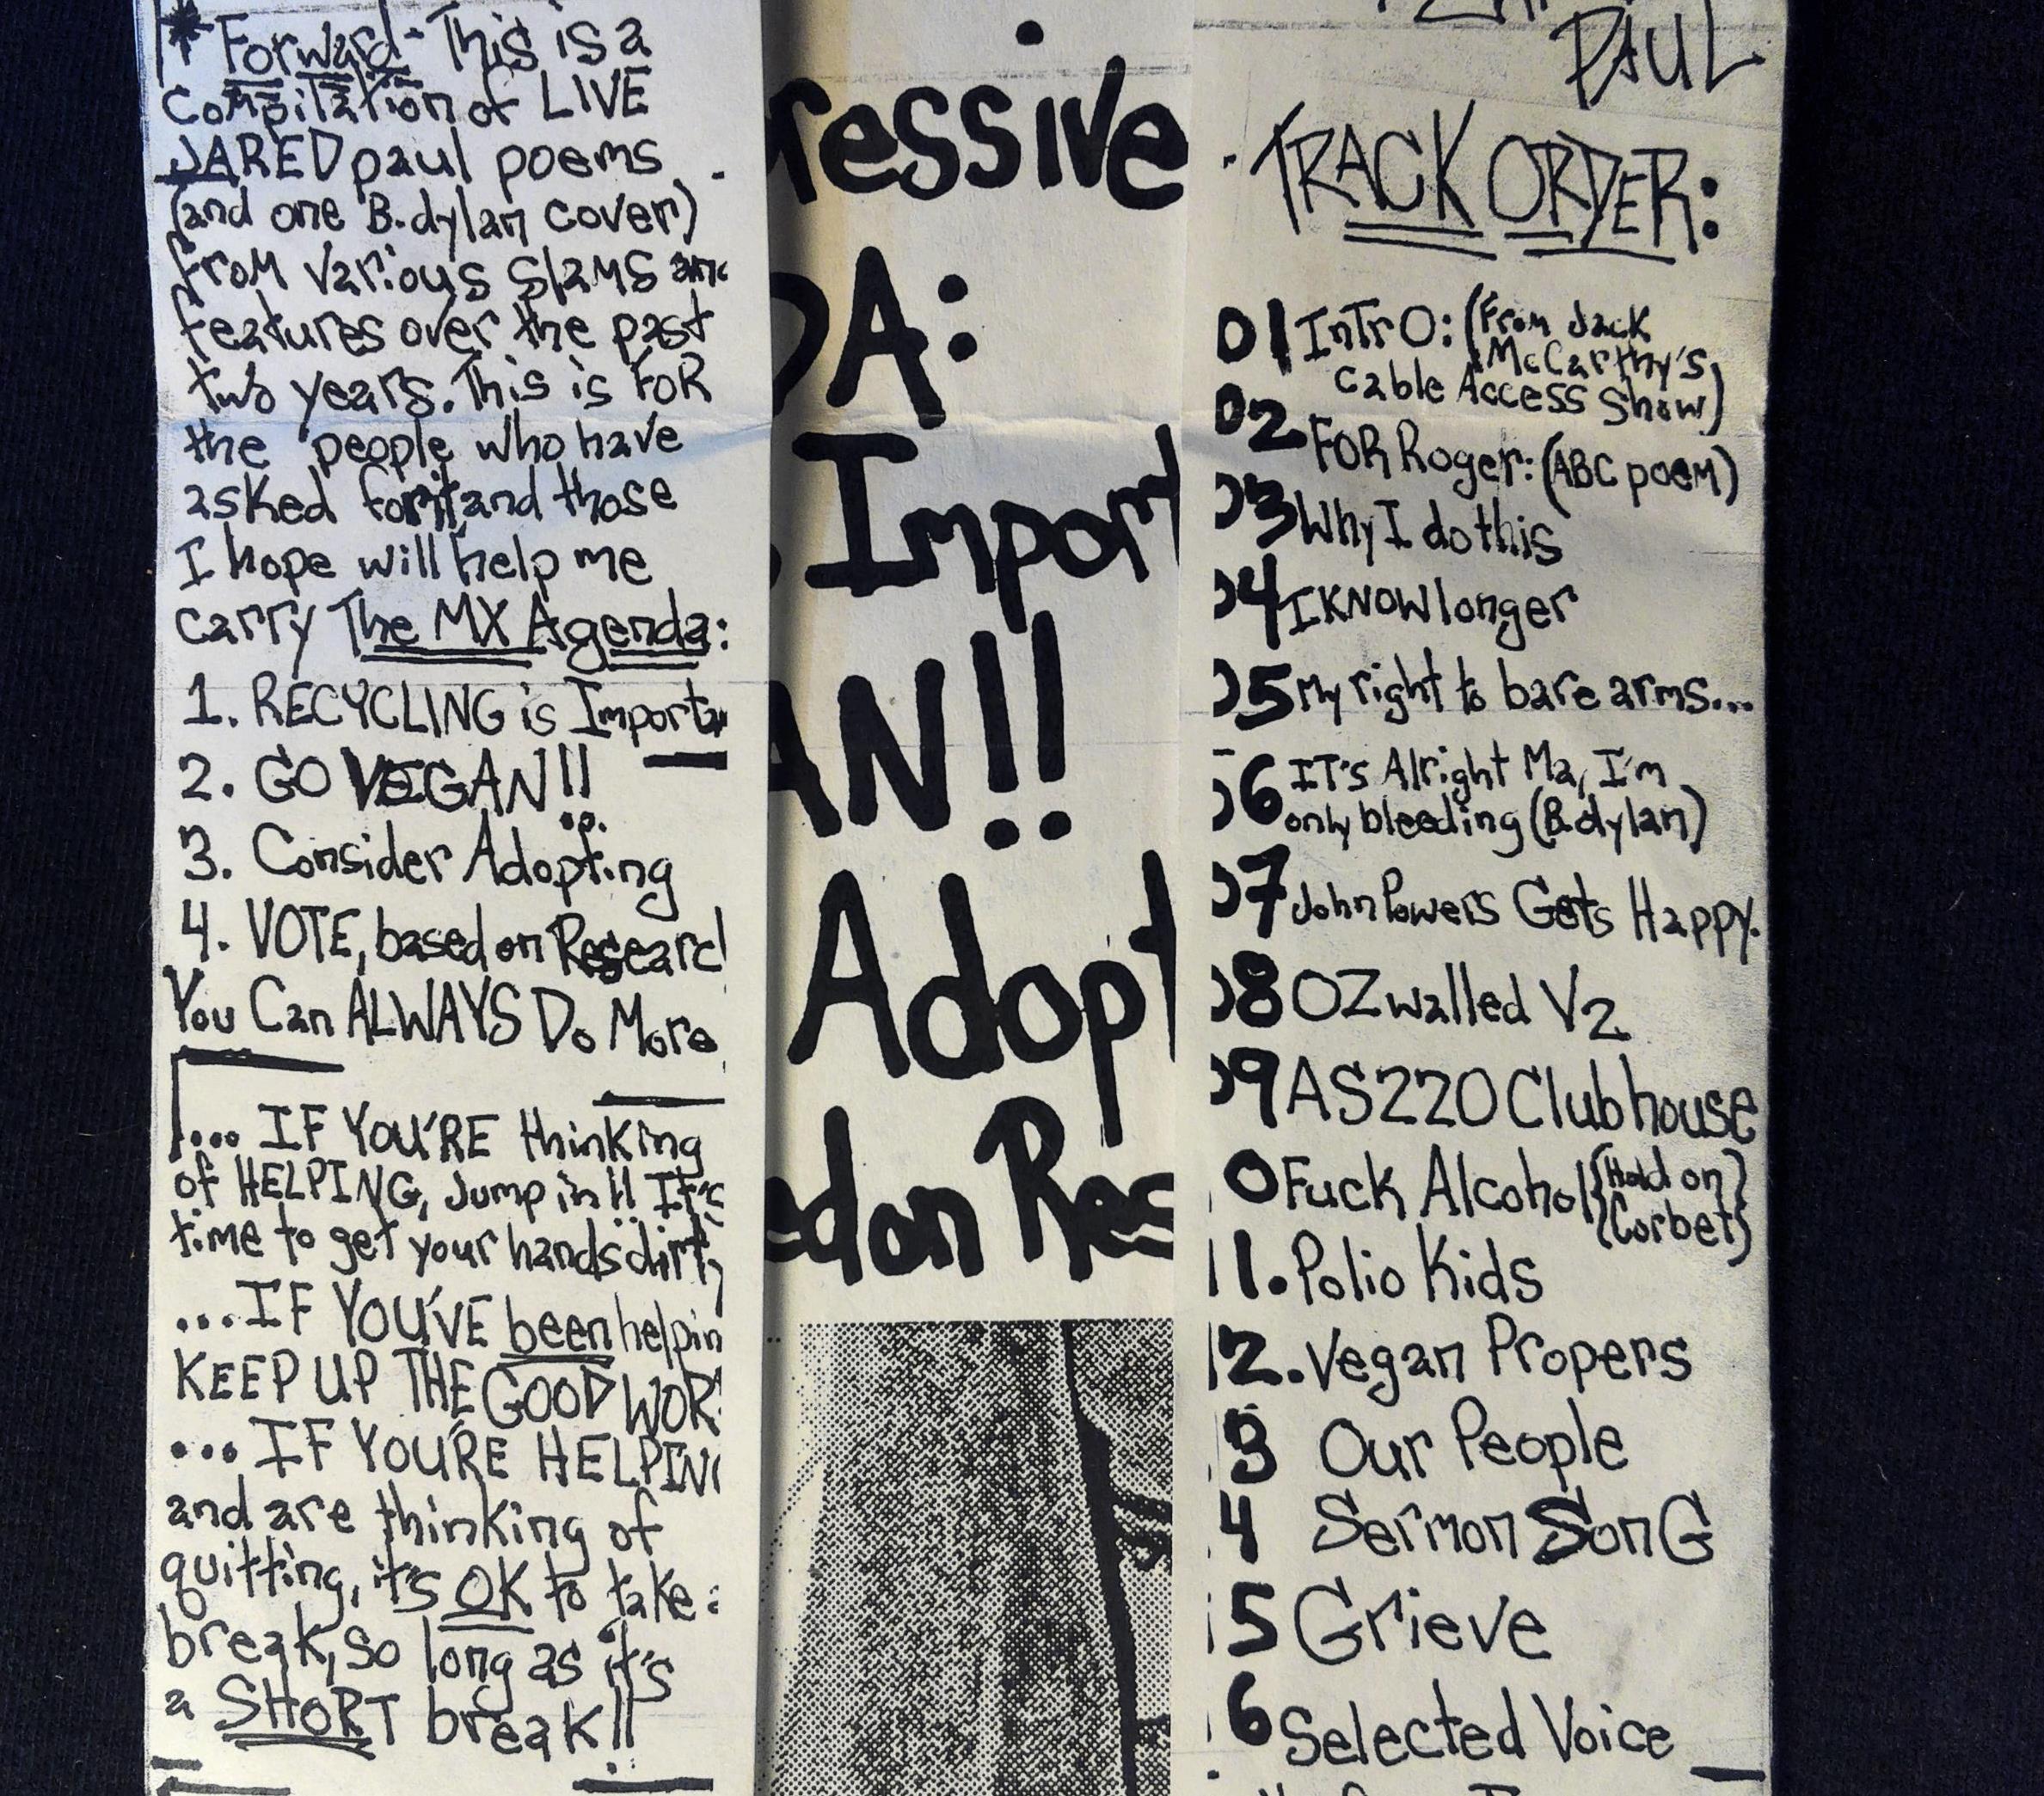 * Forward- This is a
compilation of LIVE
JARED paul poems
(and one B.dylan cover)
from various slams an
features over the past
two years. This is FOR
the people who have
asked for it, and those
I hope will help me
carry The MX Agenda:
1. RECYCLING is Importa
2. GO VEGAN!!
3. Consider Adopting
4. VOTE, based on Researc
You Can ALWAYS Do More
... IF YOU'RE thinking
of HELPING, Jump in!! It's
time to get your hands dirty
...IF YOU'VE been helpin
KEEP UP THE GOOD WOR
... IF YOU'RE HELPIN
and are thinking of
quitting, it's OK to take a
break, so long as it's
a SHORT break!!
ressive
DA:
Import
AN!!
Adopt
ed on Res
PAUL
TRACK ORDER:
01 Intro: (From Jack
McCarthy's
Cable Access Show)
02 FOR Roger: (ABC poem)
03 Why I do this
04 I KNOW longer
05 My right to bare arms...
06 IT's Alright Ma, I'm
only bleeding (B.dylan)
07 John Powers Gets Happy.
08 OZ walled V2
09 AS220 Clubhouse
0 Fuck Alcohol {Hold on}
{Corbet}
11. Polio Kids
12. Vegan Propers
3 Our People
4 Sermon SonG
15 Grieve
6 Selected Voice